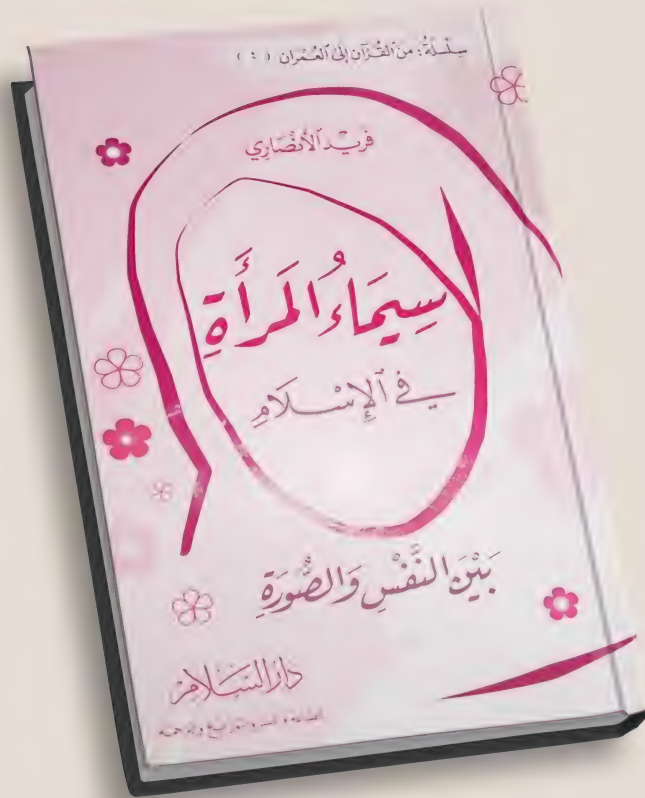 سِلْسِلَةُ: مِنَ الْقُرْآنِ إِلَى الْعُمْرَانِ (٤)
فريد الأنصاري
سِيمَاءُ المَرأَةِ
في الإِسْلَامِ
بَيْنَ النَّفْسِ وَالصُّورَةِ
دار السلام
للطباعة والنشر والتوزيع والترجمة